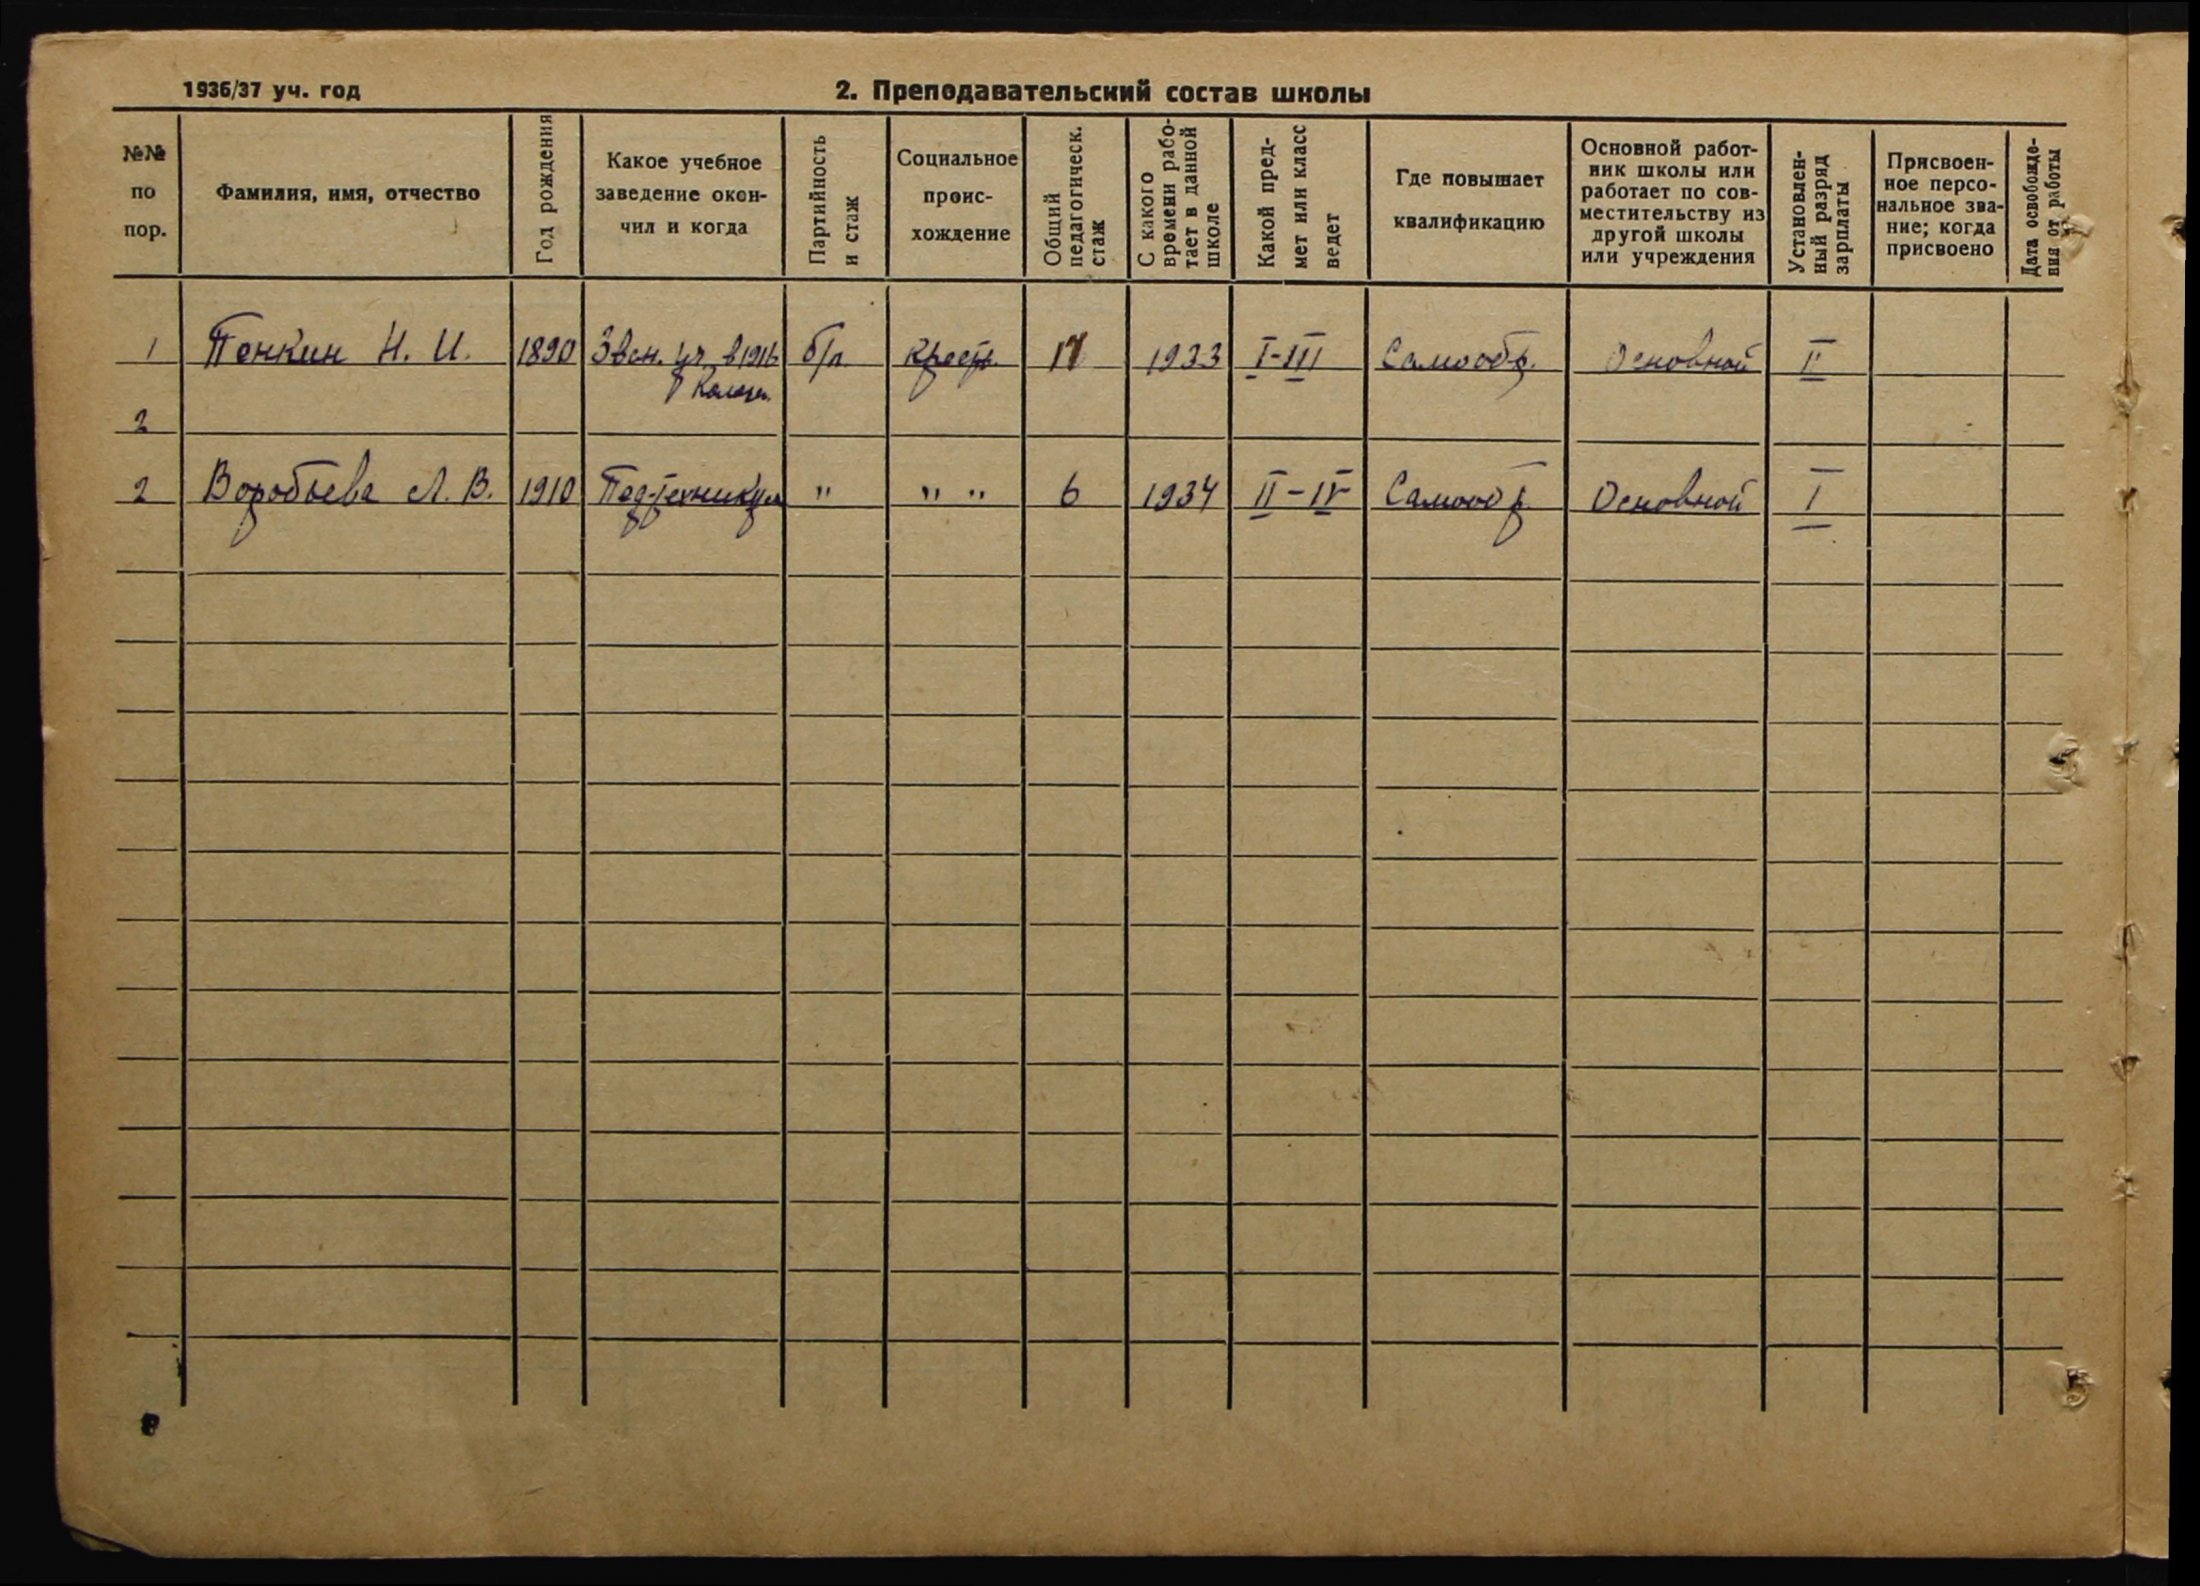 1936/37 уч. год
2. Преподавательский состав школы
№№
по
пор.
Фамилия, имя, отчество
Год рождения
Какое учебное
заведение окон-
чил и когда
Партийность
и стаж
Социальное
проис-
хождение
Общий
педагогическ.
стаж
С какого
времени рабо-
тает в данной
школе
Какой пред-
мет или класс
ведет
Где повышает
квалификацию
Основной работ-
ник школы или
работает по сов-
местительству из
другой школы
или учреждения
Установлен-
ный разряд
зарплаты
Присвоен-
ное персо-
нальное зва-
ние; когда
присвоено
Дата освобожде-
ния от работы
1 Пенкин Н. И. 1890 уч. в 1916 б/п. крест. 17 1933 I-III Самообр. Основной II
2
2 Воробьева Л. В. 1910 Педтехникум " " " 6 1934 II-IV Самообр. Основной I